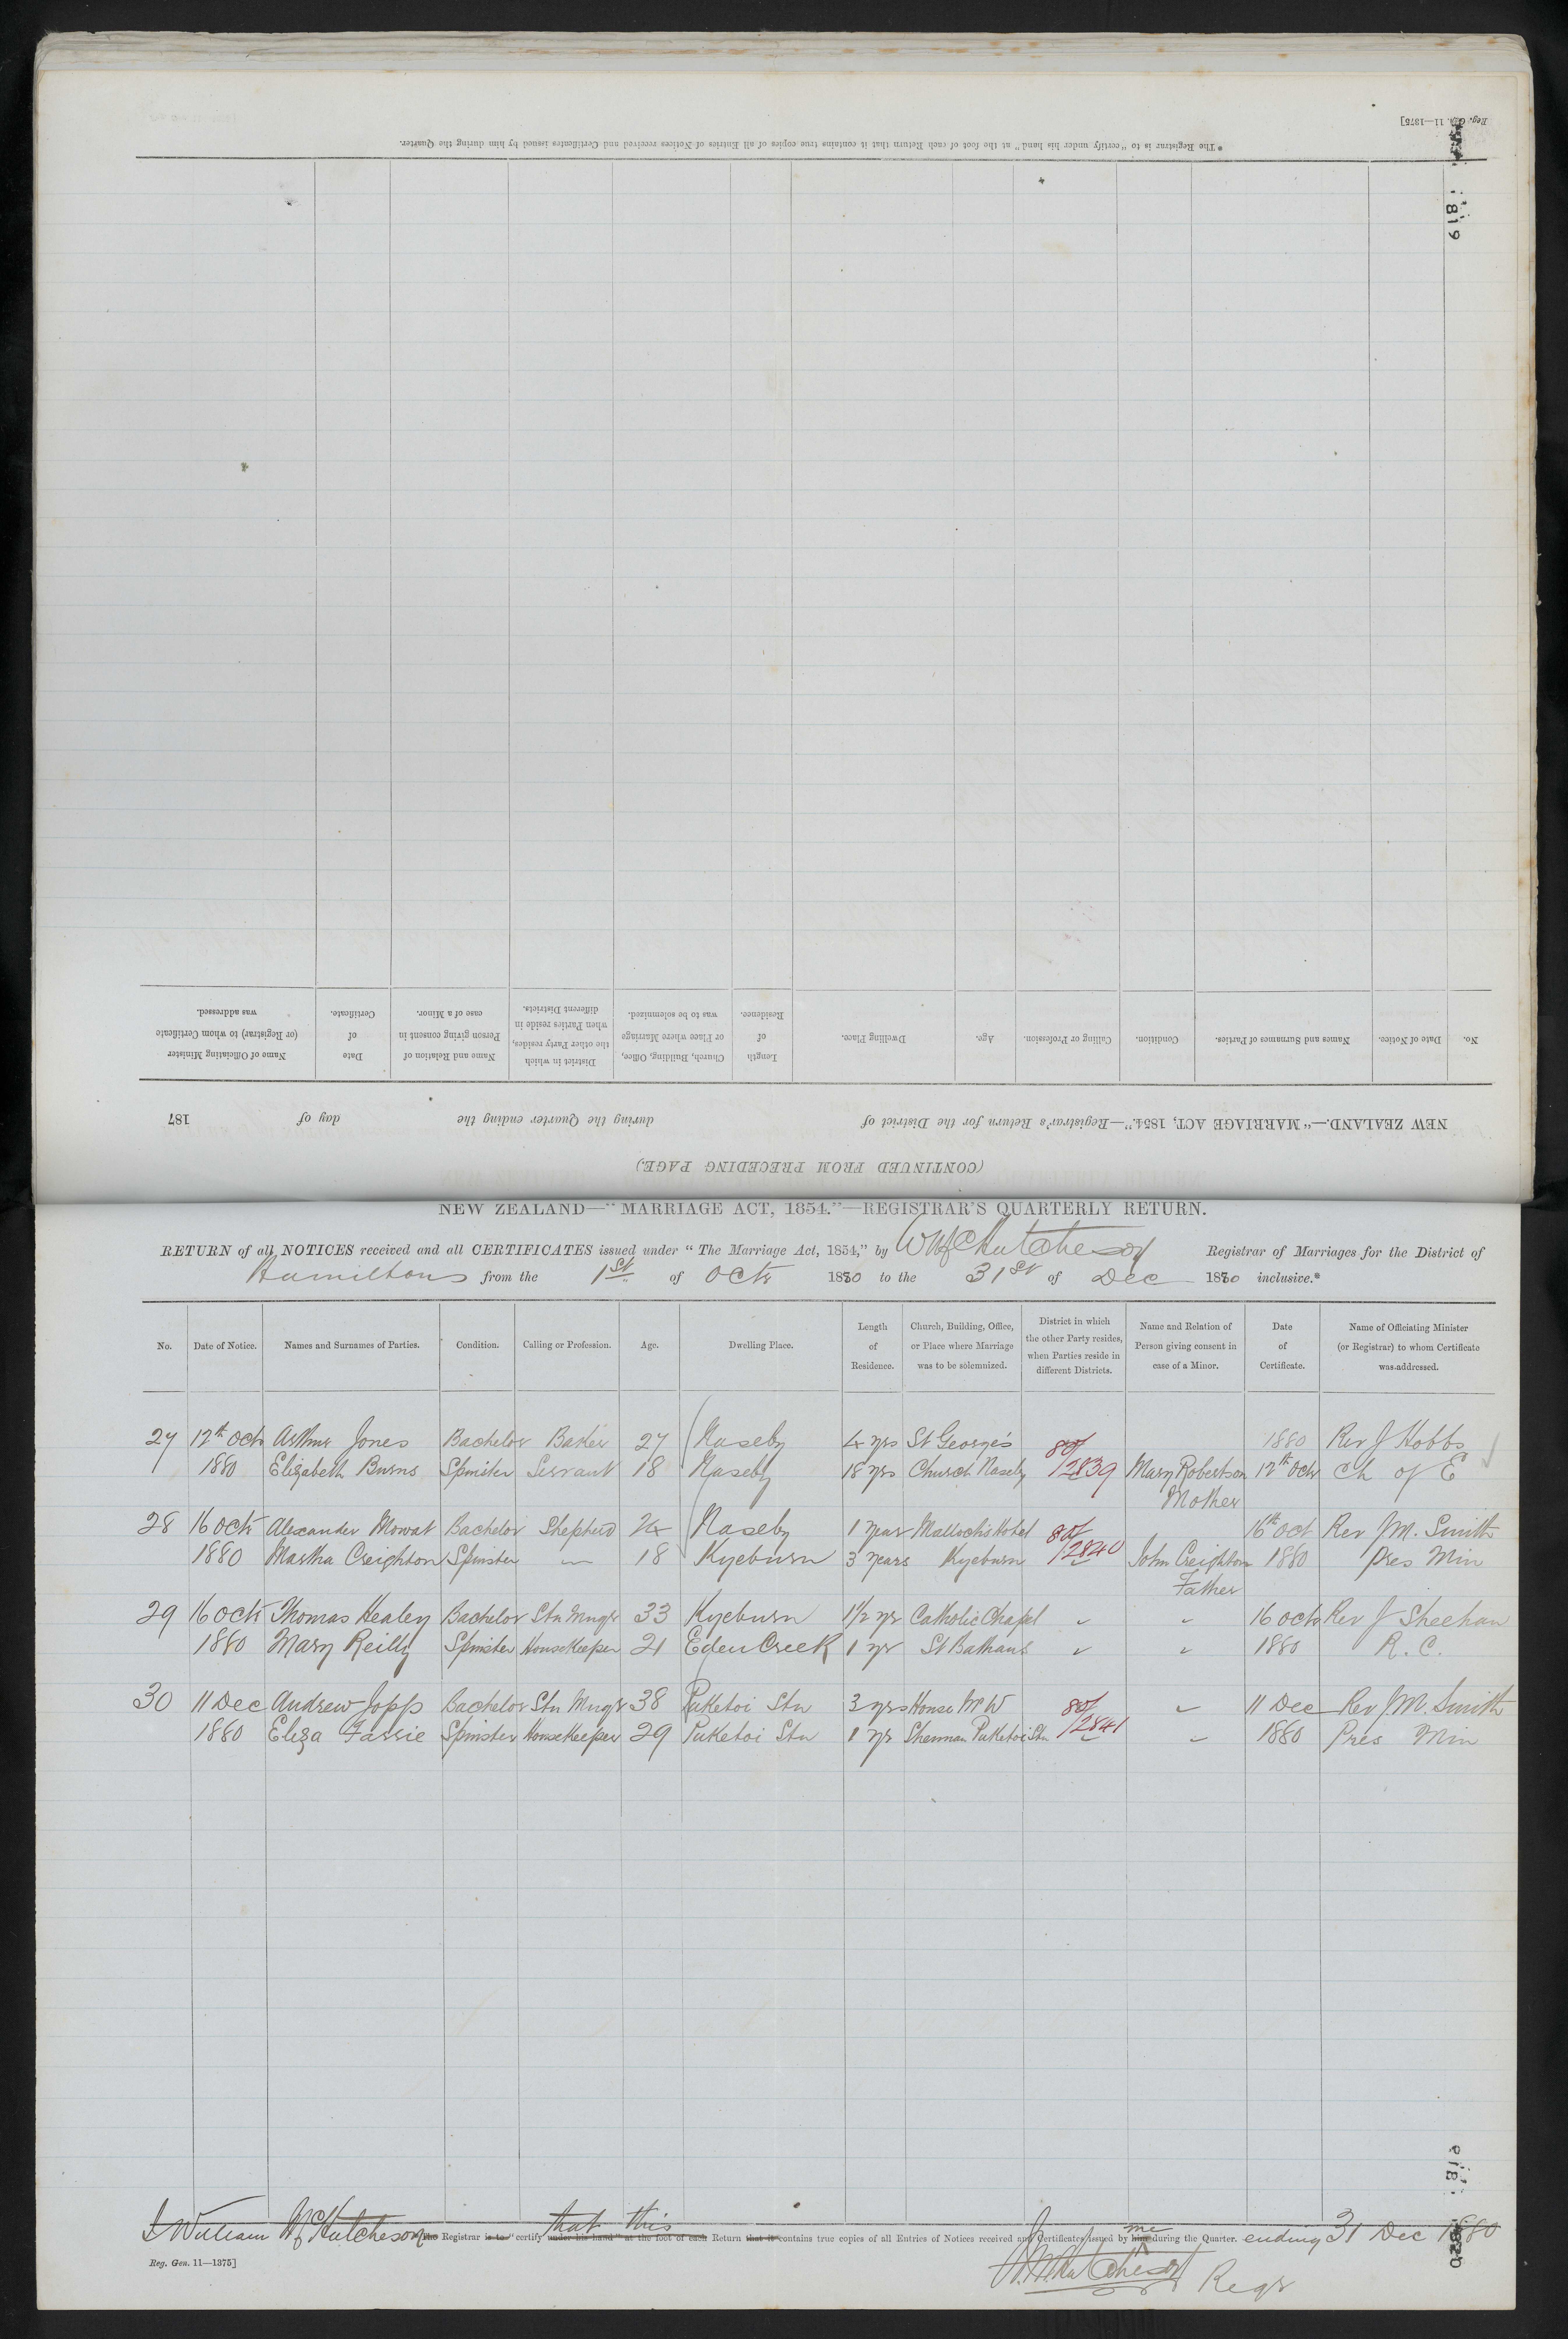 Reg. Gen. 11—1375]
* The Registrar is to "certify under his hand" at the foot of each Return that it contains true copies of all Entries of Notices received and Certificates issued by him during the Quarter.
1819
(CONTINUED FROM PRECEDING PAGE.)
NEW ZEALAND.—"MARRIAGE ACT, 1854."—Registrar's Return for the District of during the Quarter ending the day of 187
No. Date of Notice. Names and Surnames of Parties. Condition. Calling or Profession. Age. Dwelling Place. Length of Residence. Church, Building, Office, or Place where Marriage was to be solemnized. District in which the other Party resides, when Parties reside in different Districts. Name and Relation of Person giving consent in case of a Minor. Date of Certificate. Name of Officiating Minister (or Registrar) to whom Certificate was addressed.
NEW ZEALAND—"MARRIAGE ACT, 1854."—REGISTRAR'S QUARTERLY RETURN.
RETURN of all NOTICES received and all CERTIFICATES issued under "The Marriage Act, 1854," by W McHutcheson Registrar of Marriages for the District of
Hamiltons from the 1st of Octr 1880 to the 31st of Dec 1880 inclusive.*
No. Date of Notice. Names and Surnames of Parties. Condition. Calling or Profession. Age. Dwelling Place. Length of Residence. Church, Building, Office, or Place where Marriage was to be solemnized. District in which the other Party resides, when Parties reside in different Districts. Name and Relation of Person giving consent in case of a Minor. Date of Certificate. Name of Officiating Minister (or Registrar) to whom Certificate was addressed.
27 12th Octr Arthur Jones Bachelor Baker 27 Naseby 4 yrs St George's 80/ 1880 Rev J Hobbs
1880 Elizabeth Burns Spinster Servant 18 Naseby 18 yrs Church Naseby /2839 Mary Robertson 12th Octr Ch of E
Mother
28 16 Octr Alexander Mowat Bachelor Shepherd 24 Naseby 1 year Malloch's Hotel 80/ 16th Oct Rev J M. Smith
1880 Martha Creighton Spinster — 18 Kyeburn 3 years Kyeburn /2840 John Creighton 1880 Pres Min
Father
29 16 Octr Thomas Healey Bachelor Stn Mngr 33 Kyeburn 1½ yr Catholic Chapel " " 16 Octr Rev J Sheehan
1880 Mary Reilly Spinster Housekeeper 21 Eden Creek 1 yr St Bathans " " 1880 R. C.
30 11 Dec Andrew Jopp Bachelor Stn Mngr 38 Puketoi Stn 3 yrs House Mr W 80/ " 11 Dec Rev J M. Smith
1880 Eliza Fassie Spinster Housekeeper 29 Puketoi Stn 1 yr Shennan Puketoi Stn /2841 " 1880 Pres Min
I William McHutcheson the Registrar is to "certify under his hand" at the foot of each that this Return that it contains true copies of all Entries of Notices received and Certificates issued by him me during the Quarter. ending 31 Dec 1880
Reg. Gen. 11—1375]
W. McHutcheson Regr
1820